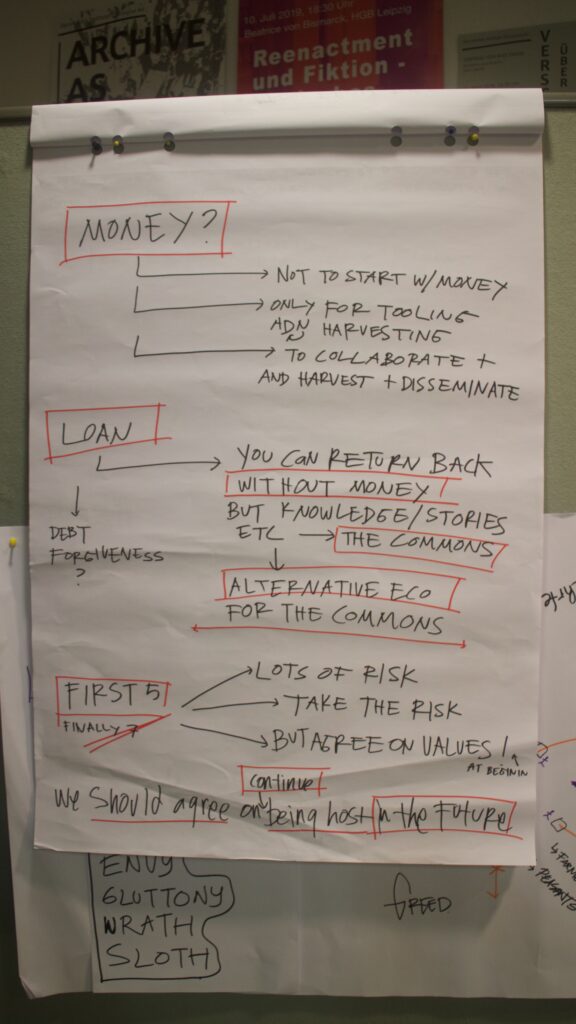 ARCHIVE
AS
10. Juli 2019, 18:30 Uhr
Beatrice von Bismarck, HGB Leipzig
Reenactment
und Fiktion -
VERS
ÜBER
MONEY?
NOT TO START W/MONEY
ONLY FOR TOOLING
ADN HARVESTING
TO COLLABORATE +
AND HARVEST + DISSEMINATE
LOAN
YOU CAN RETURN BACK
WITHOUT MONEY
BUT KNOWLEDGE/STORIES
ETC → THE COMMONS
DEBT
FORGIVENESS
?
ALTERNATIVE ECO
FOR THE COMMONS
FIRST 5
FINALLY 7
LOTS OF RISK
TAKE THE RISK
BUT AGREE ON VALUES !
AT BEGININ
continue
We should agree on being host in the Future
ENVY
GLUTTONY
WRATH
SLOTH
GREED
PEASANTS